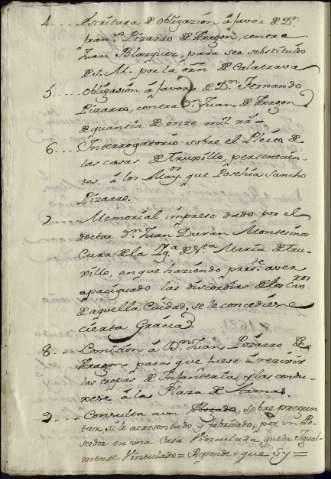 4.... Escritura de obligazion á favor de Dn
Franco Pizarro de Aragon, contra
Juan Blazquez, para ser substituido
de S. M. por la orn. de Calatrava
5.... obligasion á favor de Dn Fernando
Pizarro, contra Dn Juan de Aragon
de quantia de onze mil rs
6.... Interrogatorio sobre el Pleito de
las casas de Truxillo, pertenecien-
tes á los Mayos que Posehia Sancho
Pizarro.
7.... Memorial impreso dado por el
doctor Dn Juan Duran Montesino
Cura de la Iga de Sta Maria de Tru-
xillo, en que haziendo preste. aver
apaciguado las discordias de los
de aquella Ciudad, se le concediese
cierta Gracia
8.... Comision á Dn Juan Pizarro de
Aragon para que hiese
las tropas de Infanteria, y las condu-
xese á las Plaza de
9.... Consulta sobre pregun-
tan si lo acresentado, y fabricado, por un Po-
sedor en una Casa Vinculada queda Igual-
mente Vinculado = Responde = que Sy =